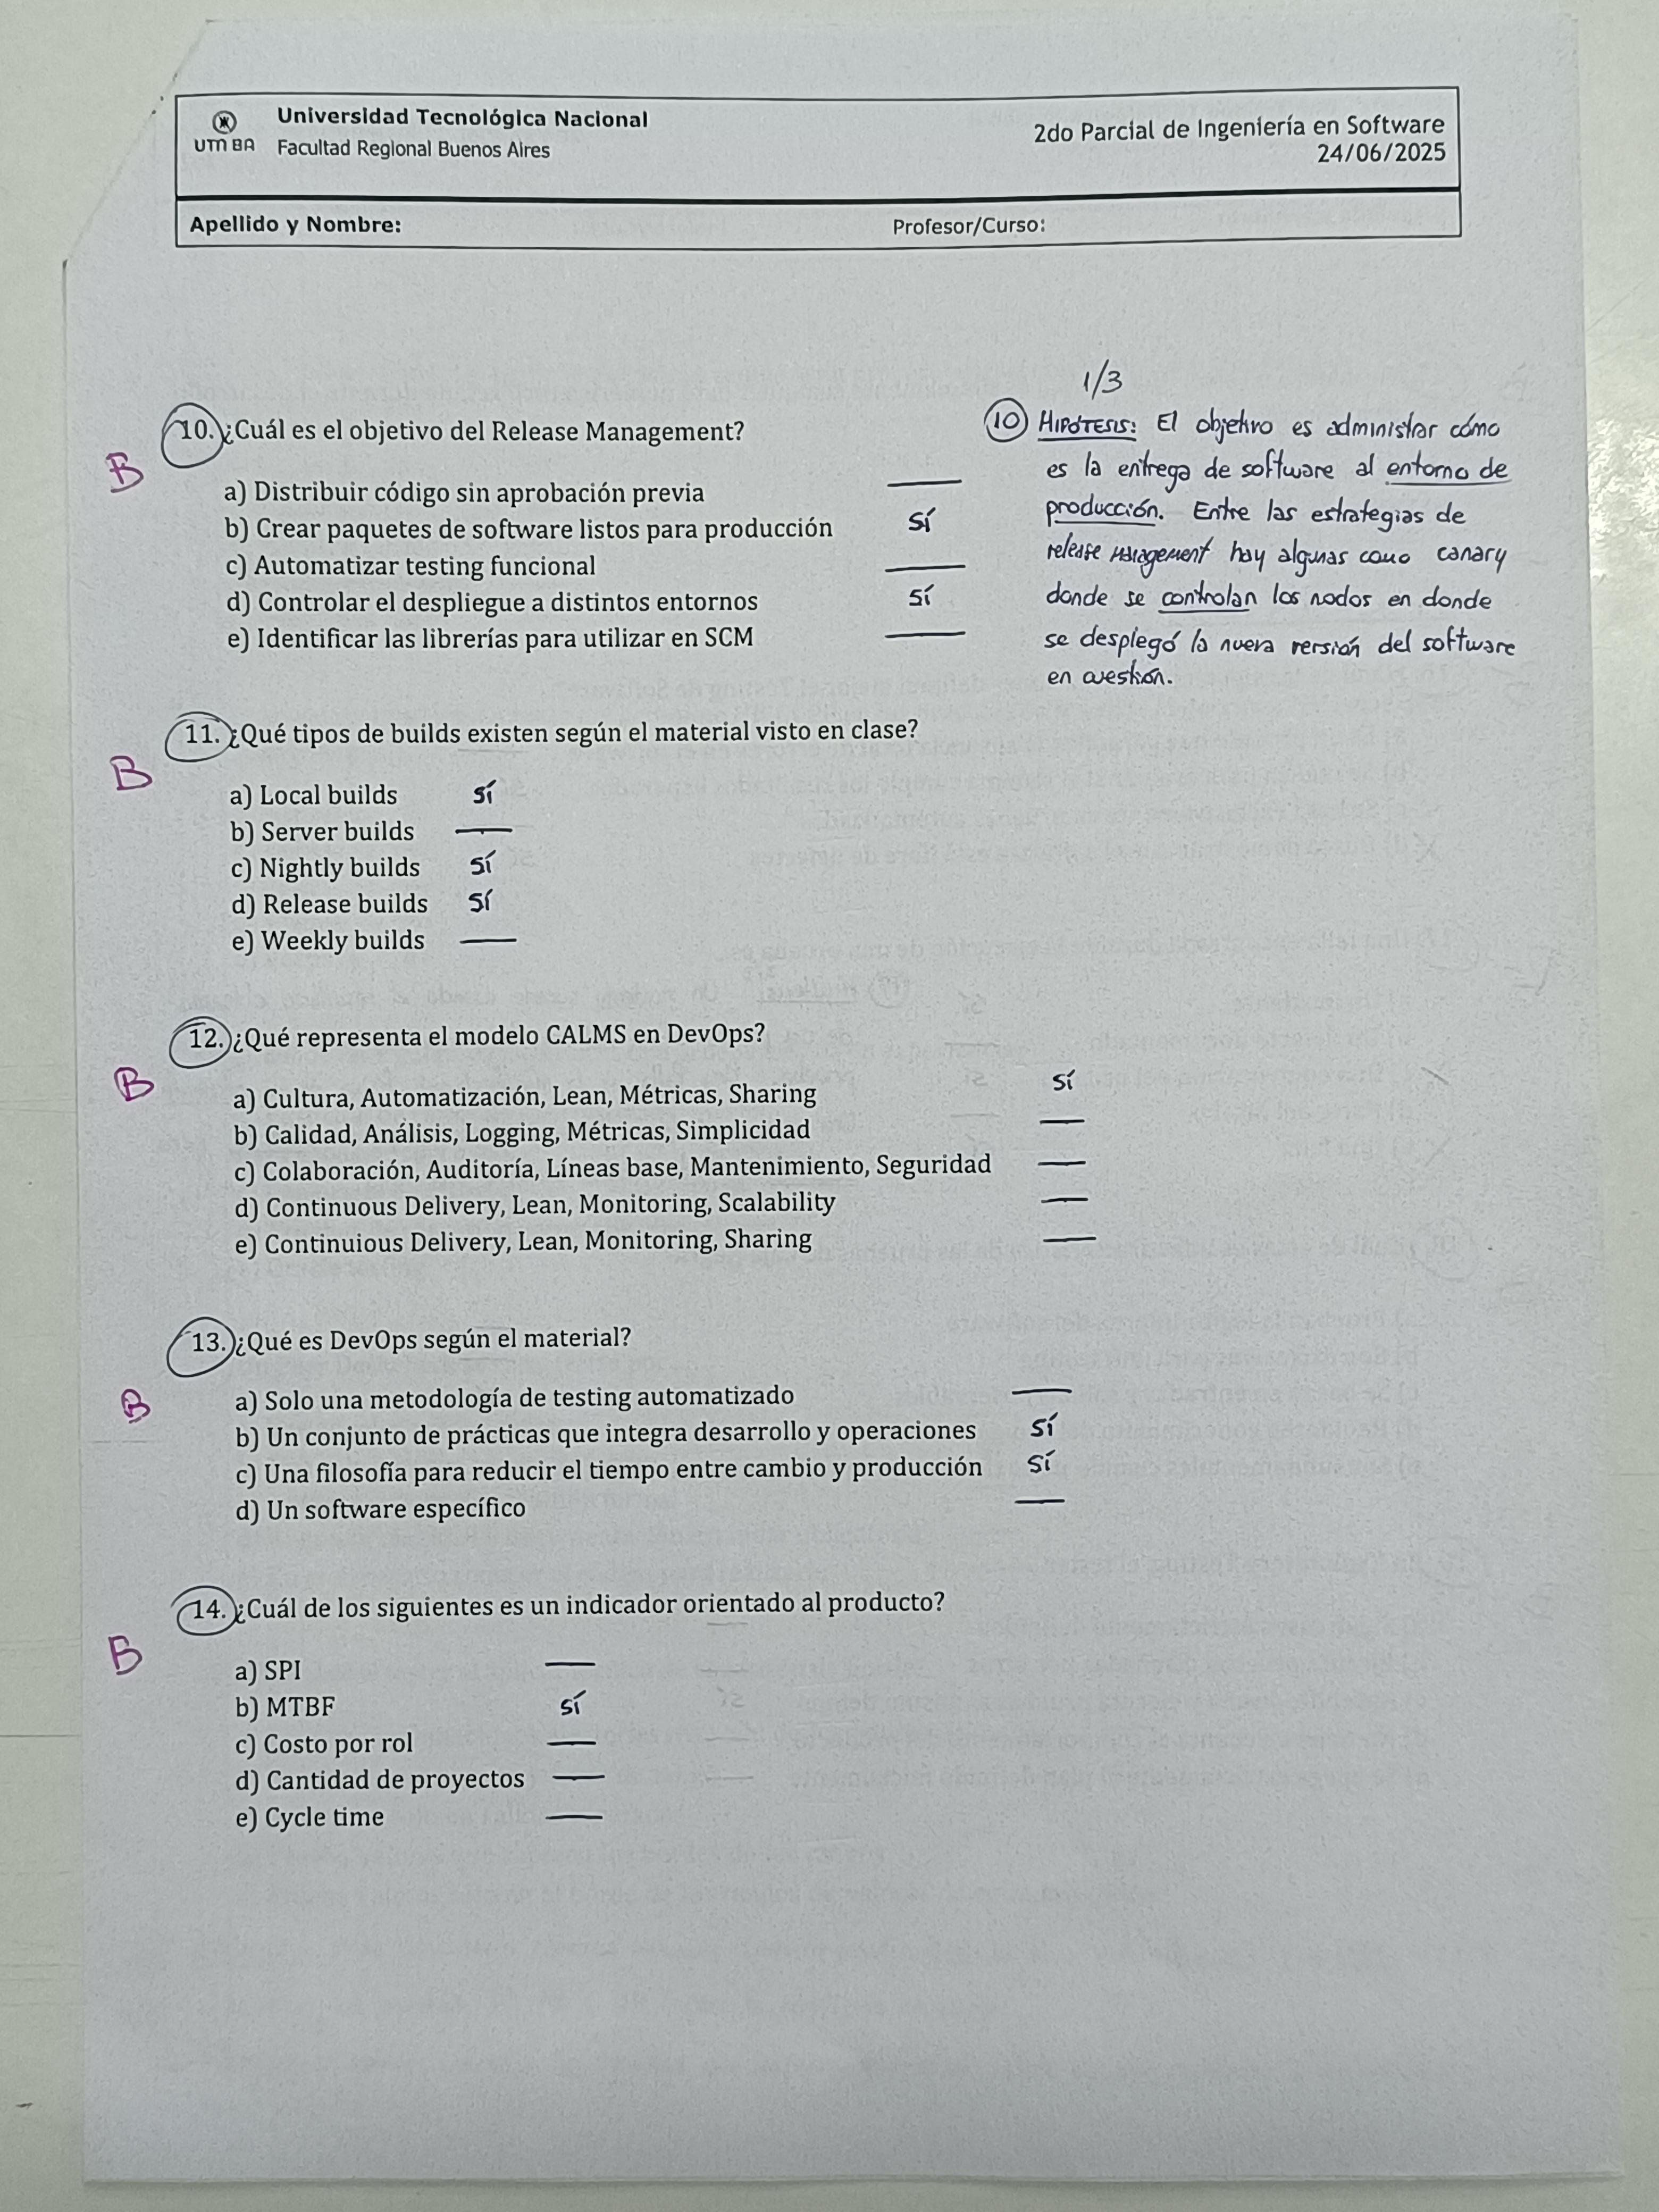 Universidad Tecnológica Nacional
UTN BA Facultad Regional Buenos Aires
2do Parcial de Ingeniería en Software
24/06/2025
Apellido y Nombre: Profesor/Curso:
1/3
10. ¿Cuál es el objetivo del Release Management?
B
a) Distribuir código sin aprobación previa
b) Crear paquetes de software listos para producción SÍ
c) Automatizar testing funcional
d) Controlar el despliegue a distintos entornos SÍ
e) Identificar las librerías para utilizar en SCM
10 HIPÓTESIS: El objetivo es administrar cómo
es la entrega de software al entorno de
producción. Entre las estrategias de
release management hay algunas como canary
donde se controlan los nodos en donde
se desplegó la nueva versión del software
en cuestión.
11. ¿Qué tipos de builds existen según el material visto en clase?
B
a) Local builds SÍ
b) Server builds
c) Nightly builds SÍ
d) Release builds SÍ
e) Weekly builds
12. ¿Qué representa el modelo CALMS en DevOps?
B
a) Cultura, Automatización, Lean, Métricas, Sharing SÍ
b) Calidad, Análisis, Logging, Métricas, Simplicidad
c) Colaboración, Auditoría, Líneas base, Mantenimiento, Seguridad
d) Continuous Delivery, Lean, Monitoring, Scalability
e) Continuious Delivery, Lean, Monitoring, Sharing
13. ¿Qué es DevOps según el material?
B
a) Solo una metodología de testing automatizado
b) Un conjunto de prácticas que integra desarrollo y operaciones SÍ
c) Una filosofía para reducir el tiempo entre cambio y producción SÍ
d) Un software específico
14. ¿Cuál de los siguientes es un indicador orientado al producto?
B
a) SPI
b) MTBF SÍ
c) Costo por rol
d) Cantidad de proyectos
e) Cycle time